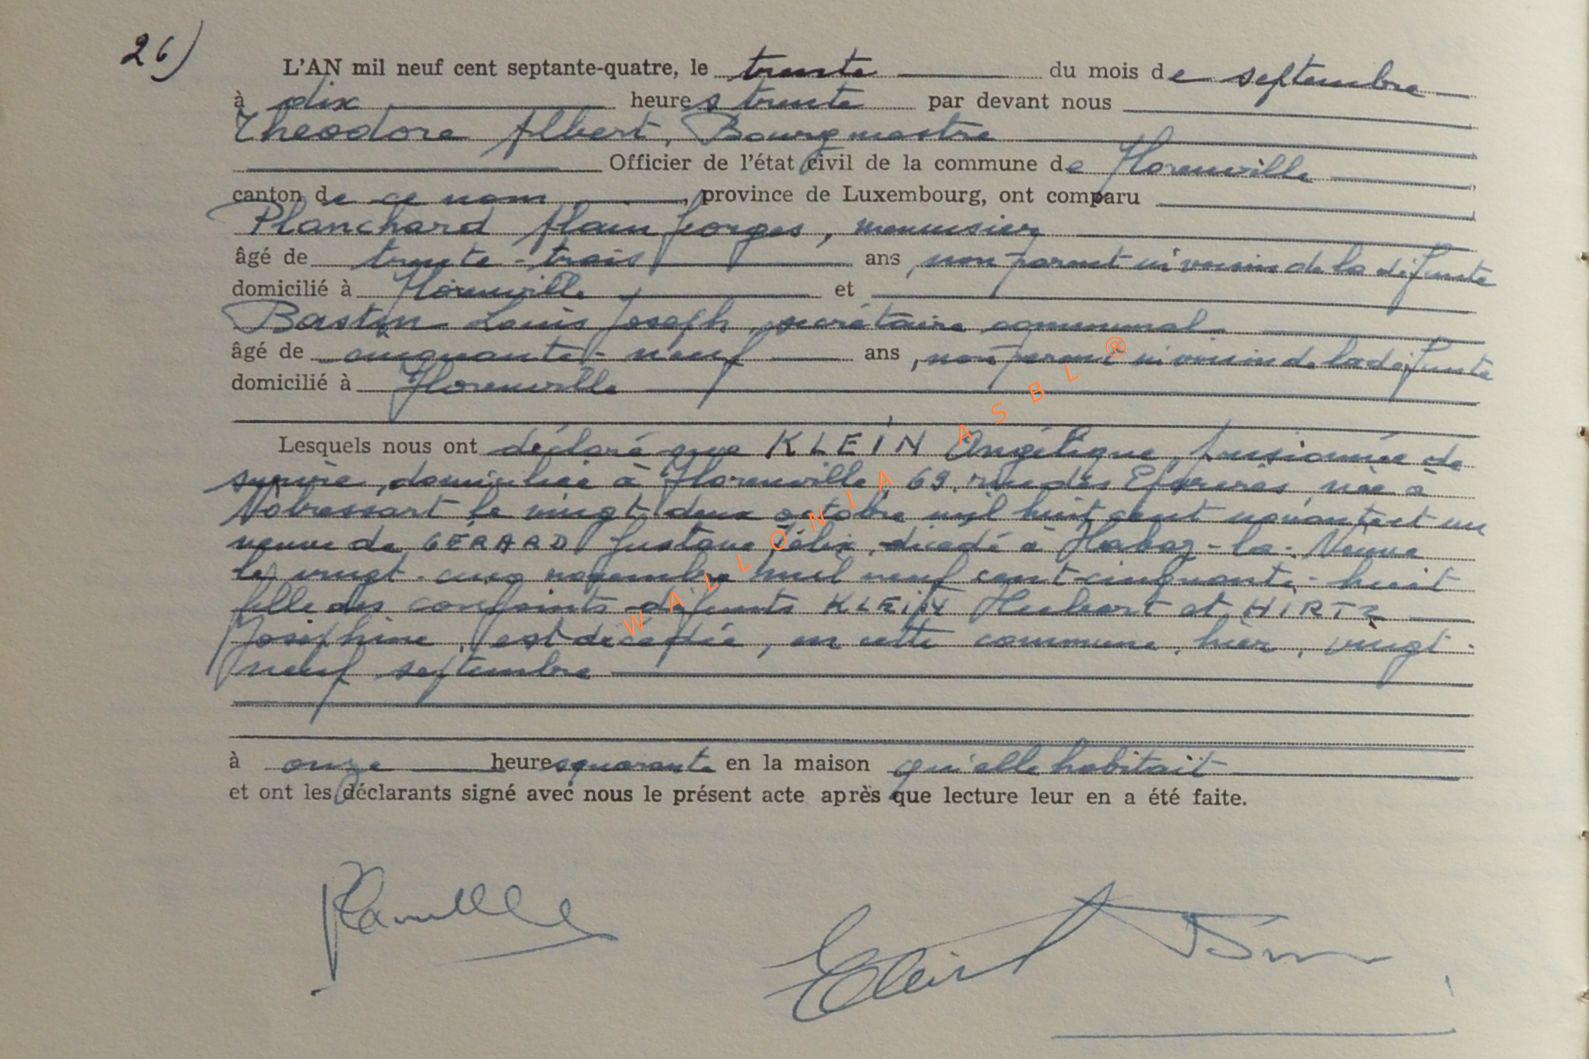 26)
L'AN mil neuf cent septante-quatre, le trente du mois de septembre
à dix heures trente par devant nous
Théodore Albert, Bourgmestre
Officier de l'état civil de la commune de Florenville
canton de ce nom, province de Luxembourg, ont comparu
Planchard Alain Georges, menuisier
âgé de trente-trois ans, non parent ni voisin de la défunte
domicilié à Florenville et
Bastin Louis Joseph, secrétaire communal
âgé de cinquante-neuf ans, non parent ni voisin de la défunte
domicilié à Florenville
Lesquels nous ont déclaré que KLEIN Angélique, pensionnée de
survie, domiciliée à Florenville, 69, rue des Epérires, née à
Nobressart le vingt-deux octobre mil huit cent nonante et un
veuve de GERARD Gustave Félix, décédé à Habay-la-Neuve
le vingt-cinq novembre mil neuf cent cinquante-huit
fille des conjoints défunts KLEIN Hubert et HIRTZ
Joséphine, est décédée, en cette commune, hier, vingt-
neuf septembre
à onze heures quarante en la maison qu'elle habitait
et ont les déclarants signé avec nous le présent acte après que lecture leur en a été faite.
WALLONIA ASBL ®